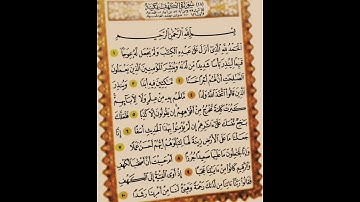 (١٨) سُورَةُ الْكَهْفِ مَكِّيَّةٌ
بِسْمِ اللَّهِ الرَّحْمَٰنِ الرَّحِيمِ
ٱلْحَمْدُ لِلَّهِ ٱلَّذِىٓ أَنزَلَ عَلَىٰ عَبْدِهِ ٱلْكِتَٰبَ وَلَمْ يَجْعَل لَّهُۥ عِوَجَا ١
قَيِّمًا لِّيُنذِرَ بَأْسًا شَدِيدًا مِّن لَّدُنْهُ وَيُبَشِّرَ ٱلْمُؤْمِنِينَ ٱلَّذِينَ يَعْمَلُونَ
ٱلصَّٰلِحَٰتِ أَنَّ لَهُمْ أَجْرًا حَسَنًا ٢ مَّٰكِثِينَ فِيهِ أَبَدًا ٣ وَيُنذِرَ
ٱلَّذِينَ قَالُوا۟ ٱتَّخَذَ ٱللَّهُ وَلَدًا ٤ مَّا لَهُم بِهِۦ مِنْ عِلْمٍ وَلَا لِءَابَآئِهِمْ
كَبُرَتْ كَلِمَةً تَخْرُجُ مِنْ أَفْوَٰهِهِمْ إِن يَقُولُونَ إِلَّا كَذِبًا ٥ فَلَعَلَّكَ
بَٰخِعٌ نَّفْسَكَ عَلَىٰٓ ءَاثَٰرِهِمْ إِن لَّمْ يُؤْمِنُوا۟ بِهَٰذَا ٱلْحَدِيثِ أَسَفًا ٦ إِنَّا
جَعَلْنَا مَا عَلَى ٱلْأَرْضِ زِينَةً لَّهَا لِنَبْلُوَهُمْ أَيُّهُمْ أَحْسَنُ عَمَلًا ٧
وَإِنَّا لَجَٰعِلُونَ مَا عَلَيْهَا صَعِيدًا جُرُزًا ٨ أَمْ حَسِبْتَ أَنَّ أَصْحَٰبَ ٱلْكَهْفِ
وَٱلرَّقِيمِ كَانُوا۟ مِنْ ءَايَٰتِنَا عَجَبًا ٩ إِذْ أَوَى ٱلْفِتْيَةُ إِلَى ٱلْكَهْفِ
فَقَالُوا۟ رَبَّنَآ ءَاتِنَا مِن لَّدُنكَ رَحْمَةً وَهَيِّئْ لَنَا مِنْ أَمْرِنَا رَشَدًا ١٠